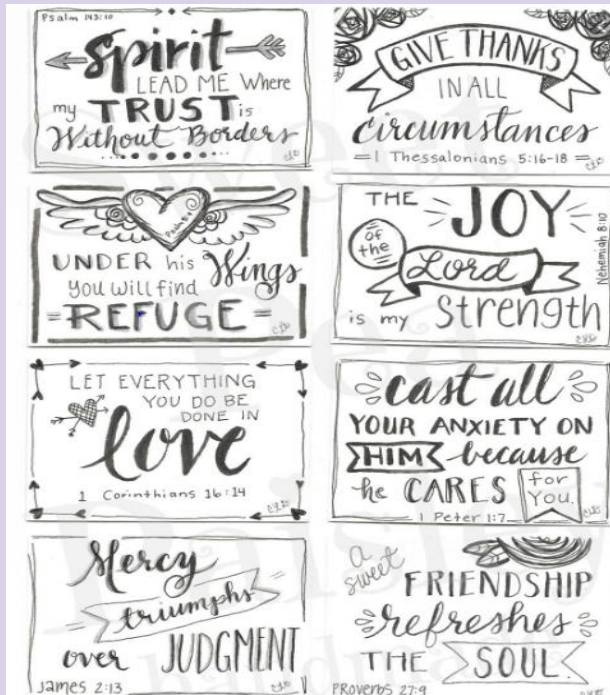 Psalm 143:10
Spirit
LEAD ME Where
my TRUST is
Without Borders
GIVE THANKS
IN ALL
Circumstances
1 Thessalonians 5:16-18
UNDER his Wings
You will find
REFUGE
THE JOY
of the
Lord
is my Strength
Nehemiah 8:10
LET EVERYTHING
YOU DO BE
DONE IN
love
1 Corinthians 16:14
cast all
YOUR ANXIETY ON
HIM because
he CARES for You.
1 Peter 1:7
Mercy
triumphs
over JUDGMENT
James 2:13
a sweet
FRIENDSHIP
refreshes
THE SOUL.
Proverbs 27:9
Sweet
Pea
Paisley